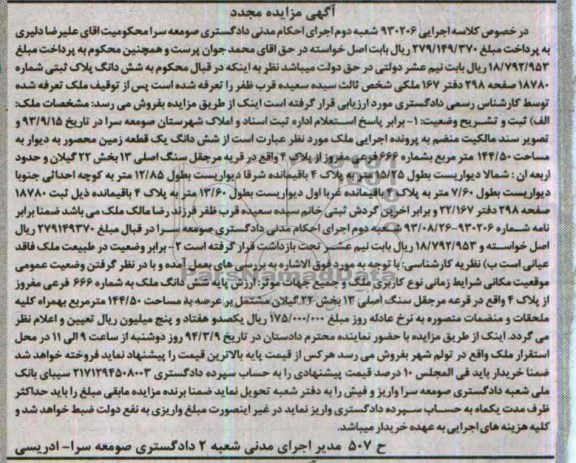 آگهی مزایده مجدد
در خصوص کلاسه اجرایی ۹۳۰۲۰۶ شعبه دوم اجرای احکام مدنی دادگستری صومعه سرا محکومیت اقای علیرضا دلیری
به پرداخت مبلغ ۲۷۹/۱۴۹/۳۷۰ ریال بابت اصل خواسته در حق اقای محمد جوان پرست و همچنین محکوم به پرداخت مبلغ
۱۸/۷۹۲/۹۵۳ ریال بابت نیم عشر دولتی در حق دولت میباشد نظر به اینکه در قبال محکوم به شش دانگ پلاک ثبتی شماره
۱۸۷۸۰ صفحه ۲۹۸ دفتر ۱۶۷ ملکی شخص ثالث سیده سعیده قرب ظفر را تعرفه شده است پس از توقیف ملک تعرفه شده
توسط کارشناس رسمی دادگستری مورد ارزیابی قرار گرفته است اینک از طریق مزایده بفروش می رسد: مشخصات ملک:
الف) ثبت و تشریح وضعیت: ۱- برابر پاسخ استعلام اداره ثبت اسناد و املاک شهرستان صومعه سرا در تاریخ ۹۳/۹/۱۵ و
تصویر سند مالکیت منضم به پرونده اجرایی ملک مورد نظر عبارت است از شش دانگ یک قطعه زمین محصور به دیوار به
مساحت ۱۴۴/۵۰ متر مربع بشماره ۶۶۶ فرعی مفروز از پلاک ۴ واقع در قریه مرجقل سنگ اصلی ۱۳ بخش ۲۲ گیلان و حدود
اربعه ان : شمالا دیواریست بطول ۱۵/۲۵ متر به پلاک ۴ باقیمانده شرقا دیواریست بطول ۱۲/۸۵ متر به کوچه احداثی جنوبا
دیواریست بطول ۷/۶۰ متر به پلاک ۴ باقیمانده غربا اول دیواریست بطول ۱۳/۶۰ متر به پلاک ۴ باقیمانده ذیل ثبت ۱۸۷۸۰
صفحه ۲۹۸ دفتر ۲۲/۱۶۷ و برابر اخرین گردش ثبتی خانم سیده سعیده قرب ظفر فرزند رضا مالک ملک می باشد ضمنا برابر
نامه شماره ۹۳۰۲۰۶-۹۳/۰۸/۲۶ شعبه دوم اجرای احکام مدنی دادگستری صومعه سرا در قبال مبلغ ۲۷۹۱۴۹۳۷۰ ریال
اصل خواسته و ۱۸/۷۹۲/۹۵۳ ریال بابت نیم عشر تحت بازداشت قرار گرفته است ۲- برابر وضعیت در طبیعت ملک فاقد
عیانی است ب) نظریه کارشناسی: با توجه به مورد فوق الاشاره به بررسی های بعمل آمده و با در نظر گرفتن وضعیت عمومی
موقعیت مکانی شرایط زمانی نوع کاربری ملک و جمیع جهات موثر: ارزش پایه شش دانگ ملک به شماره ۶۶۶ فرعی مفروز
از پلاک ۴ واقع در قرعه مرجقل سنگ اصلی ۱۳ بخش ۲۲ گیلان مشتمل بر عرصه به مساحت ۱۴۴/۵۰ مترمربع بهمراه کلیه
ملحقات و منضمات متصوره به نرخ عادله روز مبلغ ۱۷۵/۰۰۰/۰۰۰ ریال یکصدو هفتاد و پنج میلیون ریال تعیین و اعلام نظر
می گردد. اینک از طریق مزایده با حضور نماینده محترم دادستان در تاریخ ۹۴/۳/۹ روز دوشنبه از ساعت ۹ الی ۱۱ در محل
استقرار ملک واقع در تولم شهر بفروش می رسد هرکس از قیمت پایه بالاترین قیمت را پیشنهاد نماید فروخته خواهد شد
ضمنا خریدار باید فی المجلس ۱۰ درصد قیمت پیشنهادی را به حساب سپرده دادگستری ۲۱۷۱۲۹۴۵۰۸۰۰۳ سیبای بانک
ملی شعبه دادگستری صومعه سرا واریز و فیش را به دفتر شعبه تحویل نماید ضمنا برنده مزایده مابقی مبلغ را باید حداکثر
ظرف مدت یکماه به حساب سپرده دادگستری واریز نماید در غیر اینصورت مبلغ واریزی به نفع دولت ضبط خواهد شد و
کلیه هزینه های اجرایی به عهده خریدار میباشد.
ح ۵۰۷ مدیر اجرای مدنی شعبه ۲ دادگستری صومعه سرا- ادریسی